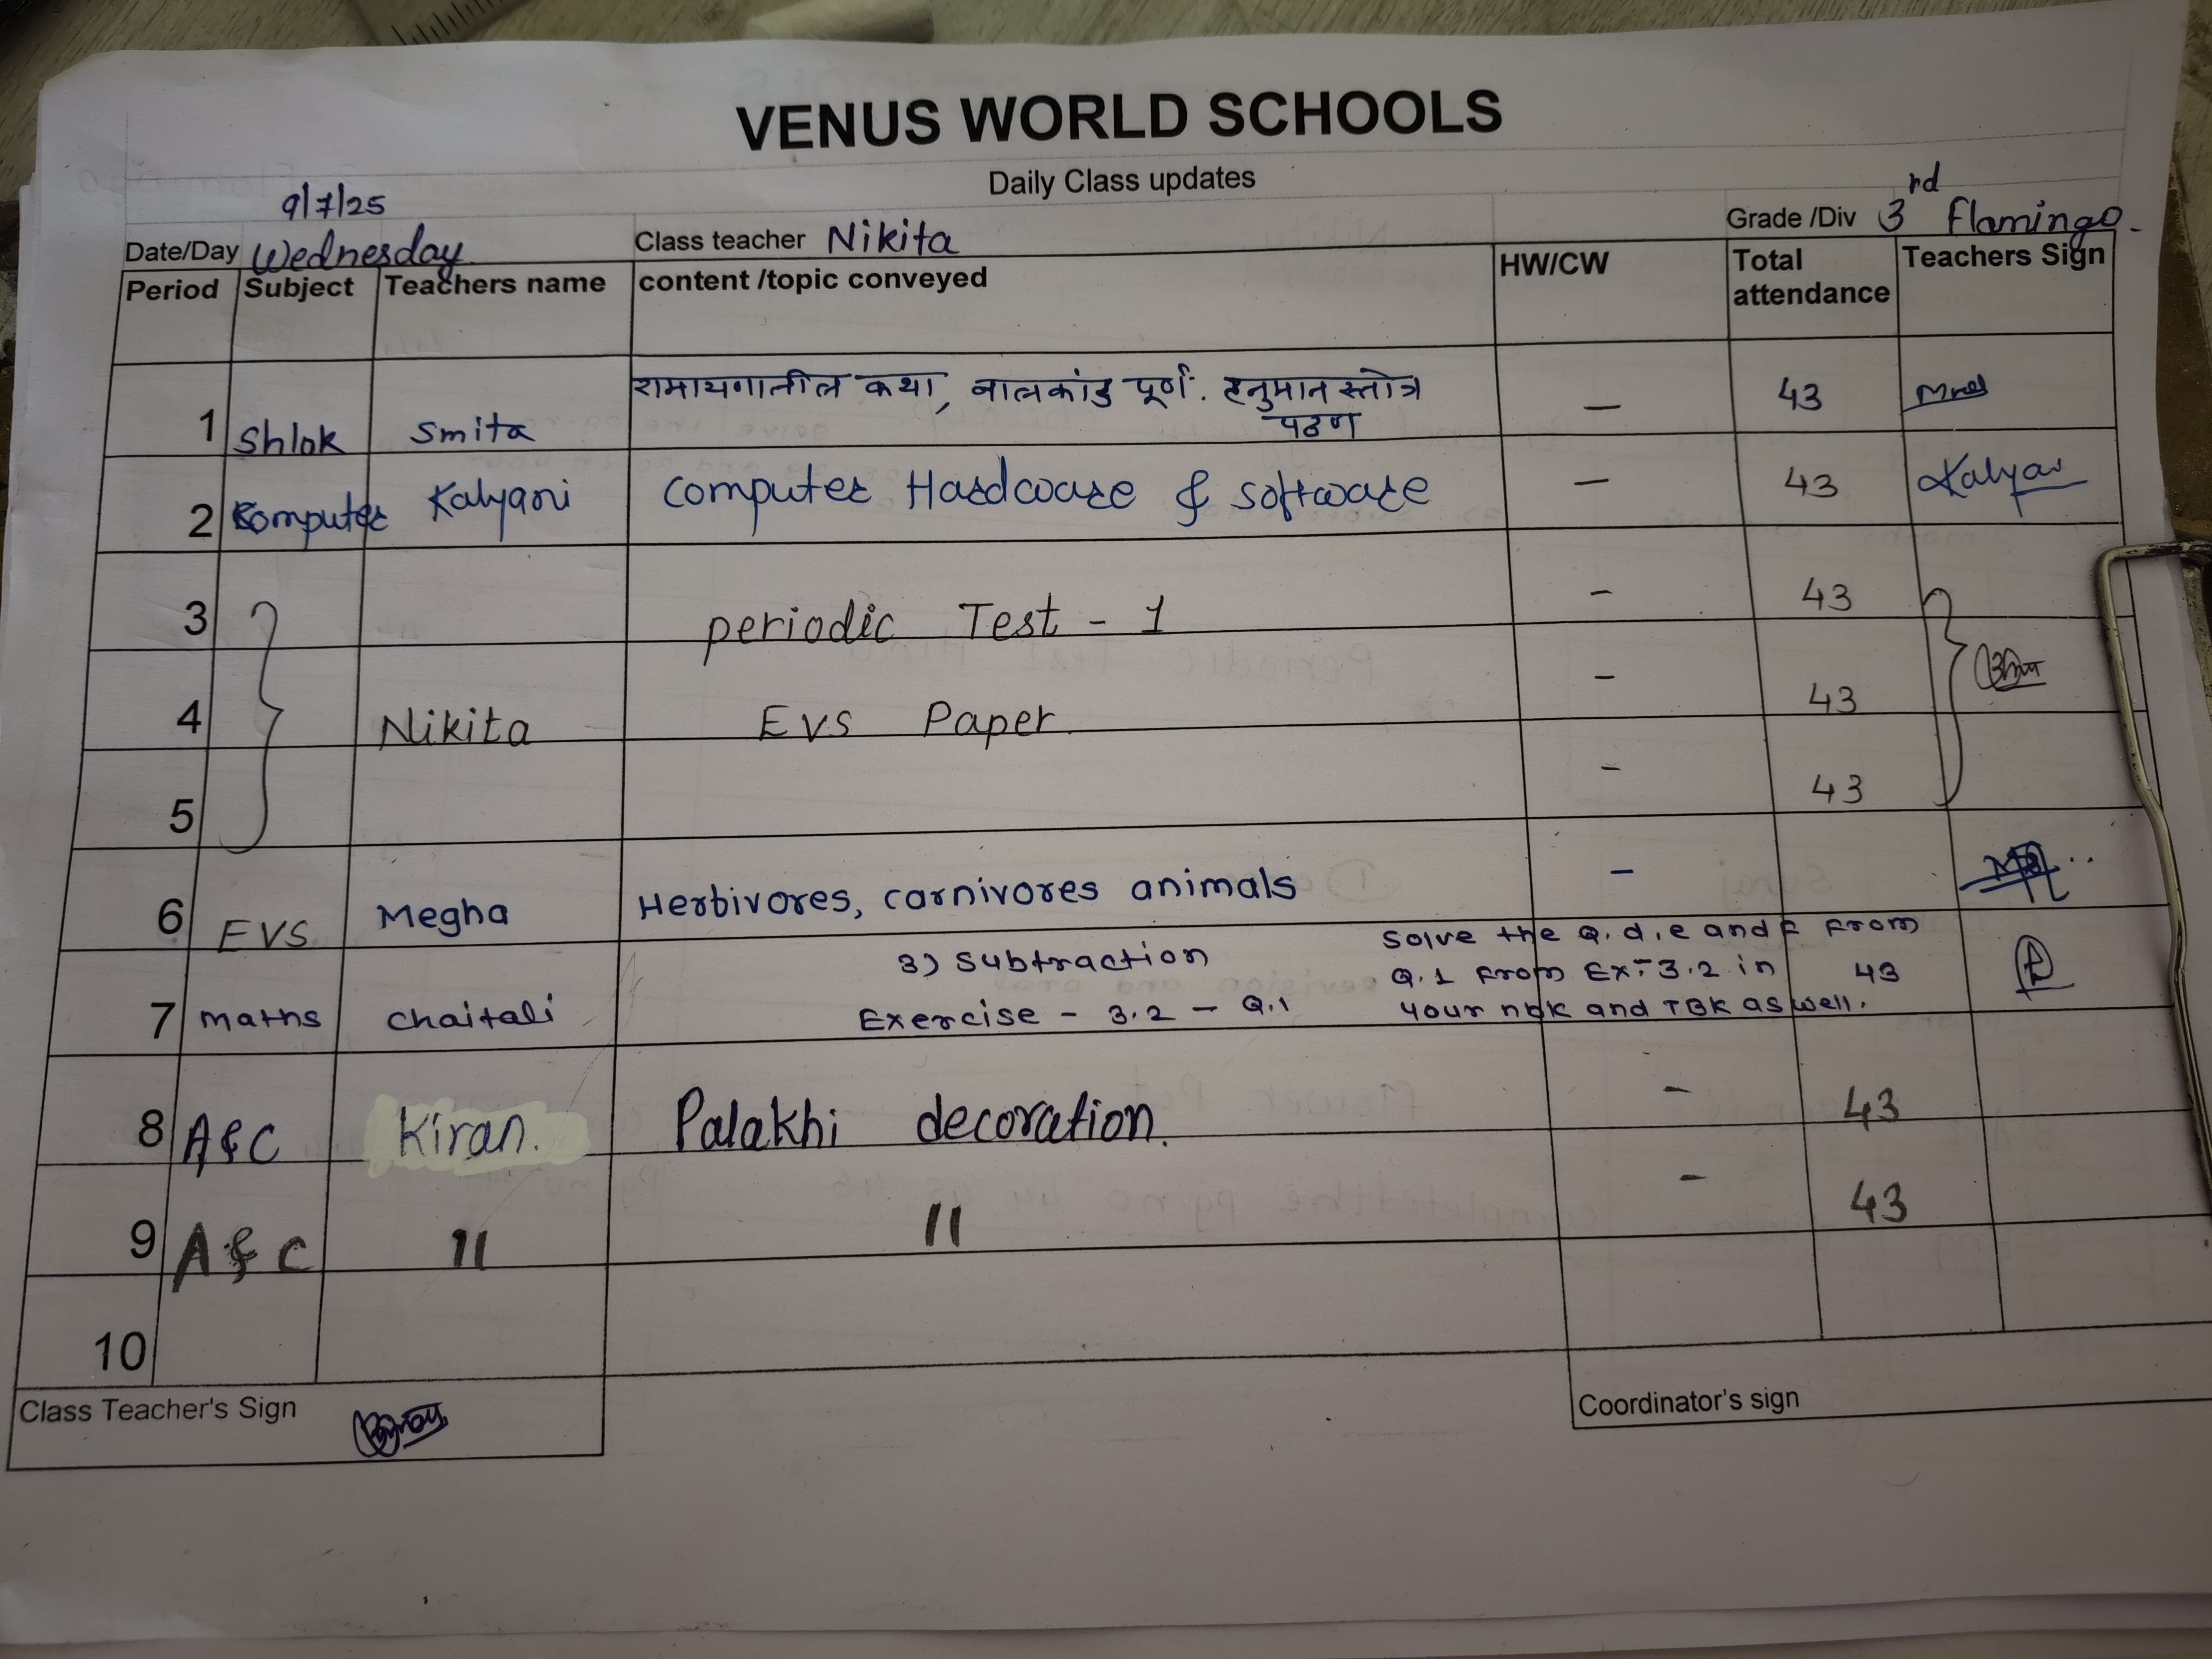 VENUS WORLD SCHOOLS
Daily Class updates
9/7/25
Date/Day Wednesday. Class teacher Nikita Grade /Div 3rd Flamingo.
Period Subject Teachers name content /topic conveyed HW/CW Total attendance Teachers Sign
1 Shlok Smita रामायणातील कथा, बालकांड पूर्ण. हनुमान स्तोत्र पठण — 43
2 Computer Kalyani Computer Hardware & software — 43 Kalyani
3 periodic Test - 1 - 43
4 Nikita EVS Paper. - 43
5 - 43
6 EVS Megha Herbivores, carnivores animals -
7 maths chaitali 3) Subtraction
Exercise - 3.2 - Q.1
Solve the Q. d, e and F From
Q.1 From Ex:-3.2 in 43
your nbk and TBK as well.
8 A&C Kiran. Palakhi decoration. - 43
9 A & C 11 11 - 43
10
Class Teacher's Sign
Coordinator's sign